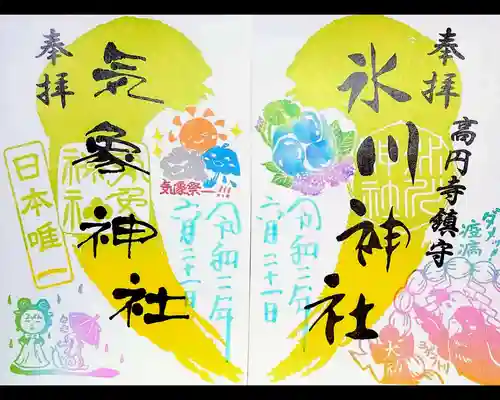 奉拝
氷川神社
高円寺鎮守
令和二年
六月二十一日
ダメッ!
疫病
奉拝
気象神社
日本唯一
気象祭!!!
令和二年
六月二十一日